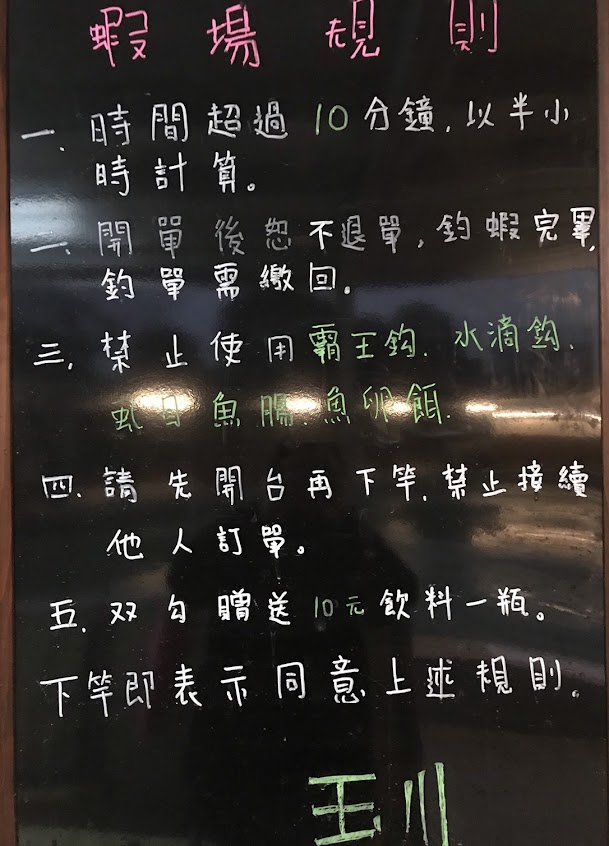 蝦場規則
一、時間超過10分鐘，以半小
時計算。
二、開單後恕不退單，釣蝦完畢，
釣單需繳回。
三、禁止使用霸王鈎、水滴鈎、
虱目魚腸、魚卵餌、
四、請先開台再下竿，禁止接續
他人訂單。
五、双勾贈送10元飲料一瓶。
下竿即表示同意上述規則。
玉川